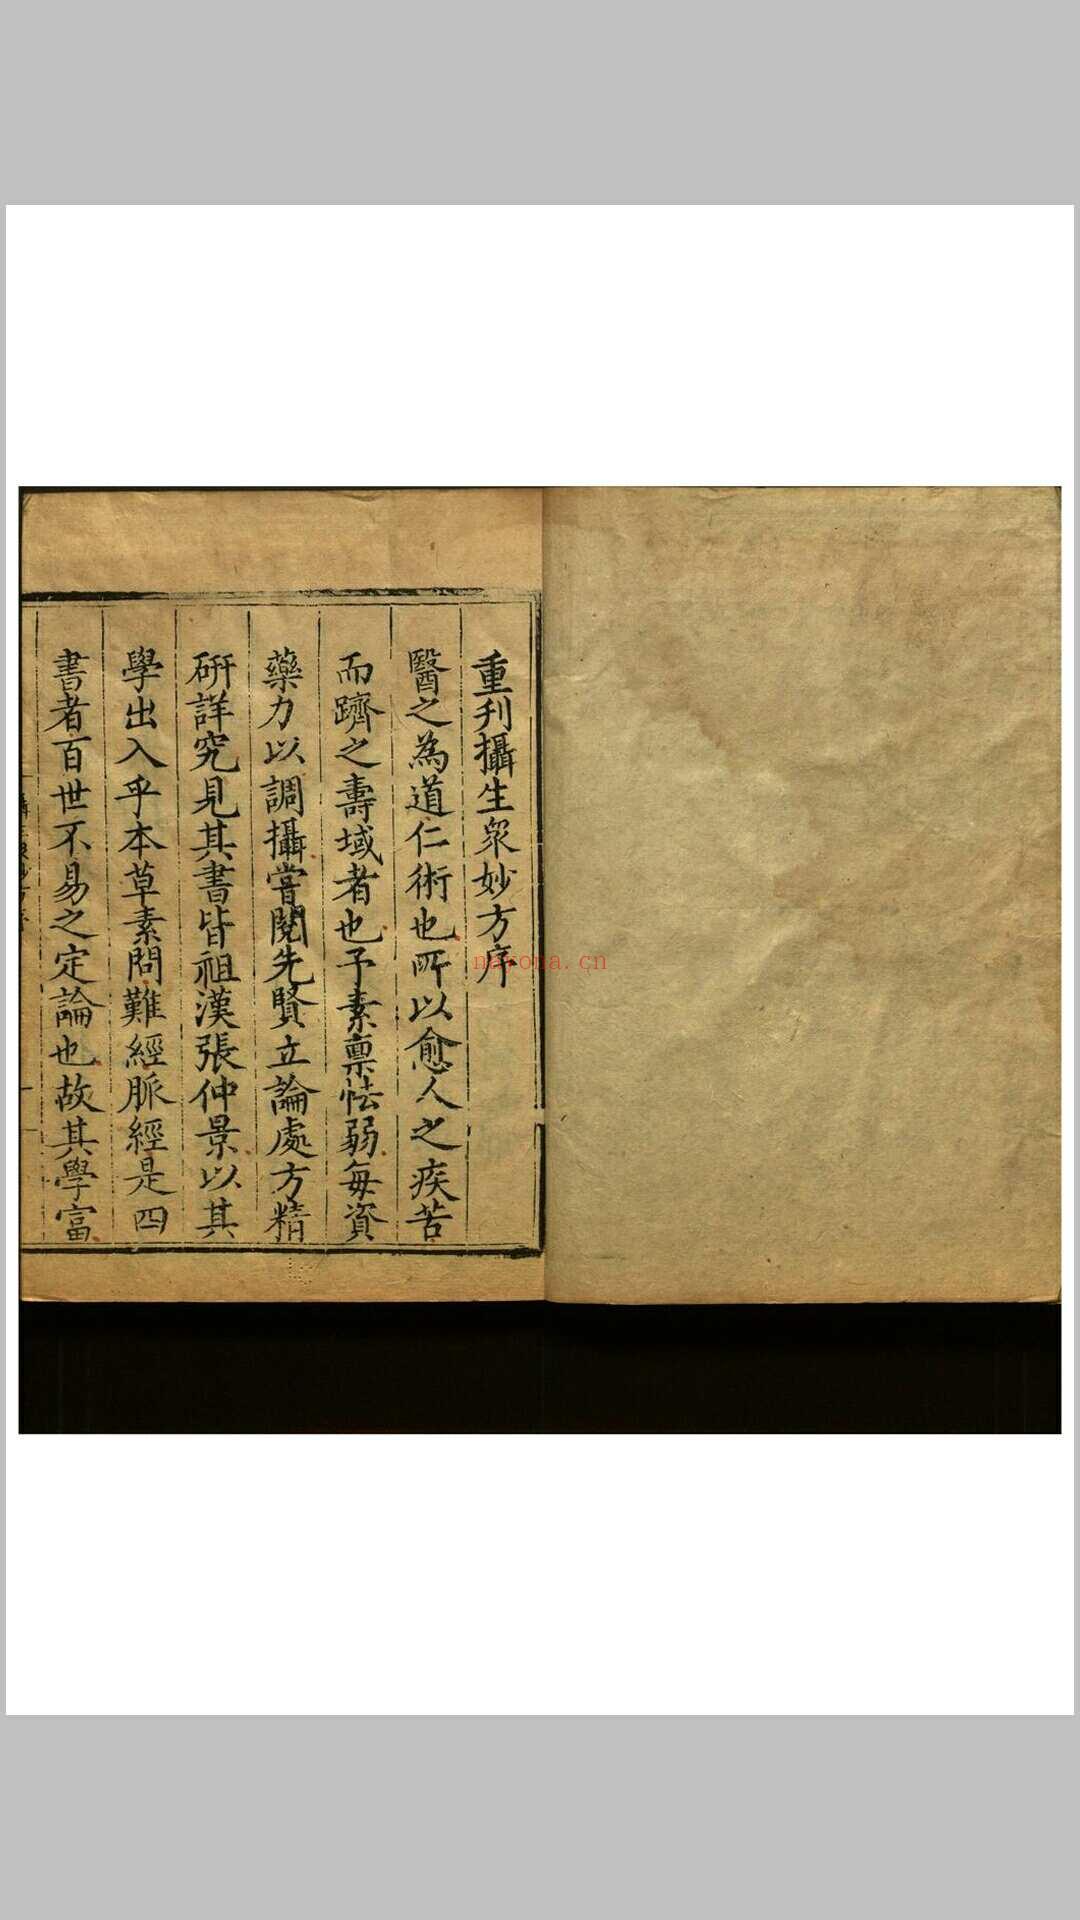 重刋攝生眾妙方序
醫之為道仁術也所以愈人之疾苦
而躋之壽域者也予素禀怯弱每資
藥力以調攝嘗閱先賢立論處方精
研詳究見其書皆祖漢張仲景以其
學出入乎本草素問難經脈經是四
書者百世不易之定論也故其學富
nayona.cn